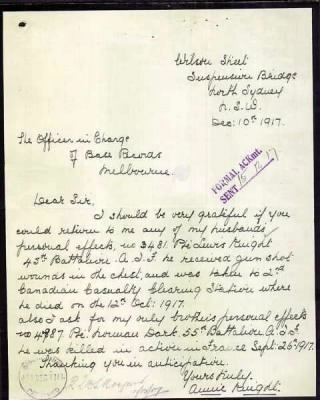 Wilson Street
Suspension Bridge
North Sydney
N.S.W.
Dec: 10th 1917.
The Officer in Charge
of Base Records
Melbourne.
FORMAL ACKmt.
SENT
Dear Sir.
I should be very grateful if you
could return to me any of my husbands
personal effects, no 3481. Pte Lewis Knight
45th Battalion A.I.F. he received gun shot
wounds in the chest, and was taken to 2nd
Canadian Casualty Clearing Station where
he died on the 12th Oct: 1917.
also I ask for my only brothers personal effects
no 4987 Pte. Norman Dark. 55th Battalion A.I.F.
he was killed in action in France Sept: 26th 1917.
Thanking you in anticipation.
Yours Truly
Annie Knight.